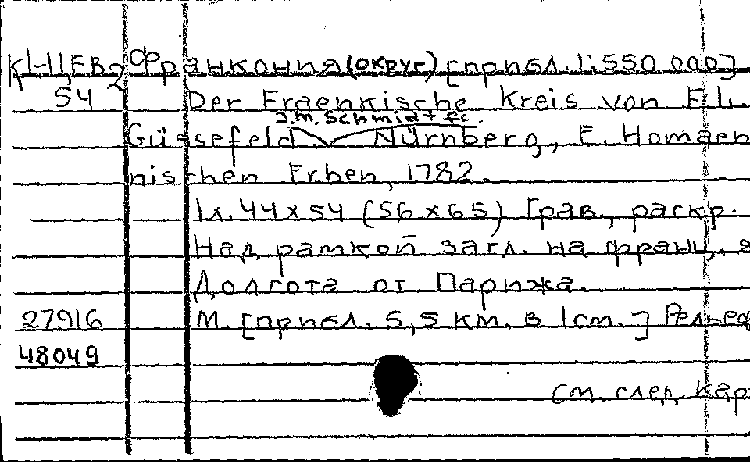 К1-ЦЕВ2 Франкония (округ) [прибл. 1:550 000]
54 Der Fraenkische Kreis von F. L.
J. M. Schmidt fc.
Güssefeld Nürnberg, E. Homaen-
nischen Erben, 1782.
1л. 44x54 (56x65) [грав., раскр.
Над рамкой загл. на франц.
Долгота от Парижа.
27916 М. [прибл. 5,5 км. в 1см.]
48049
см. след. кар